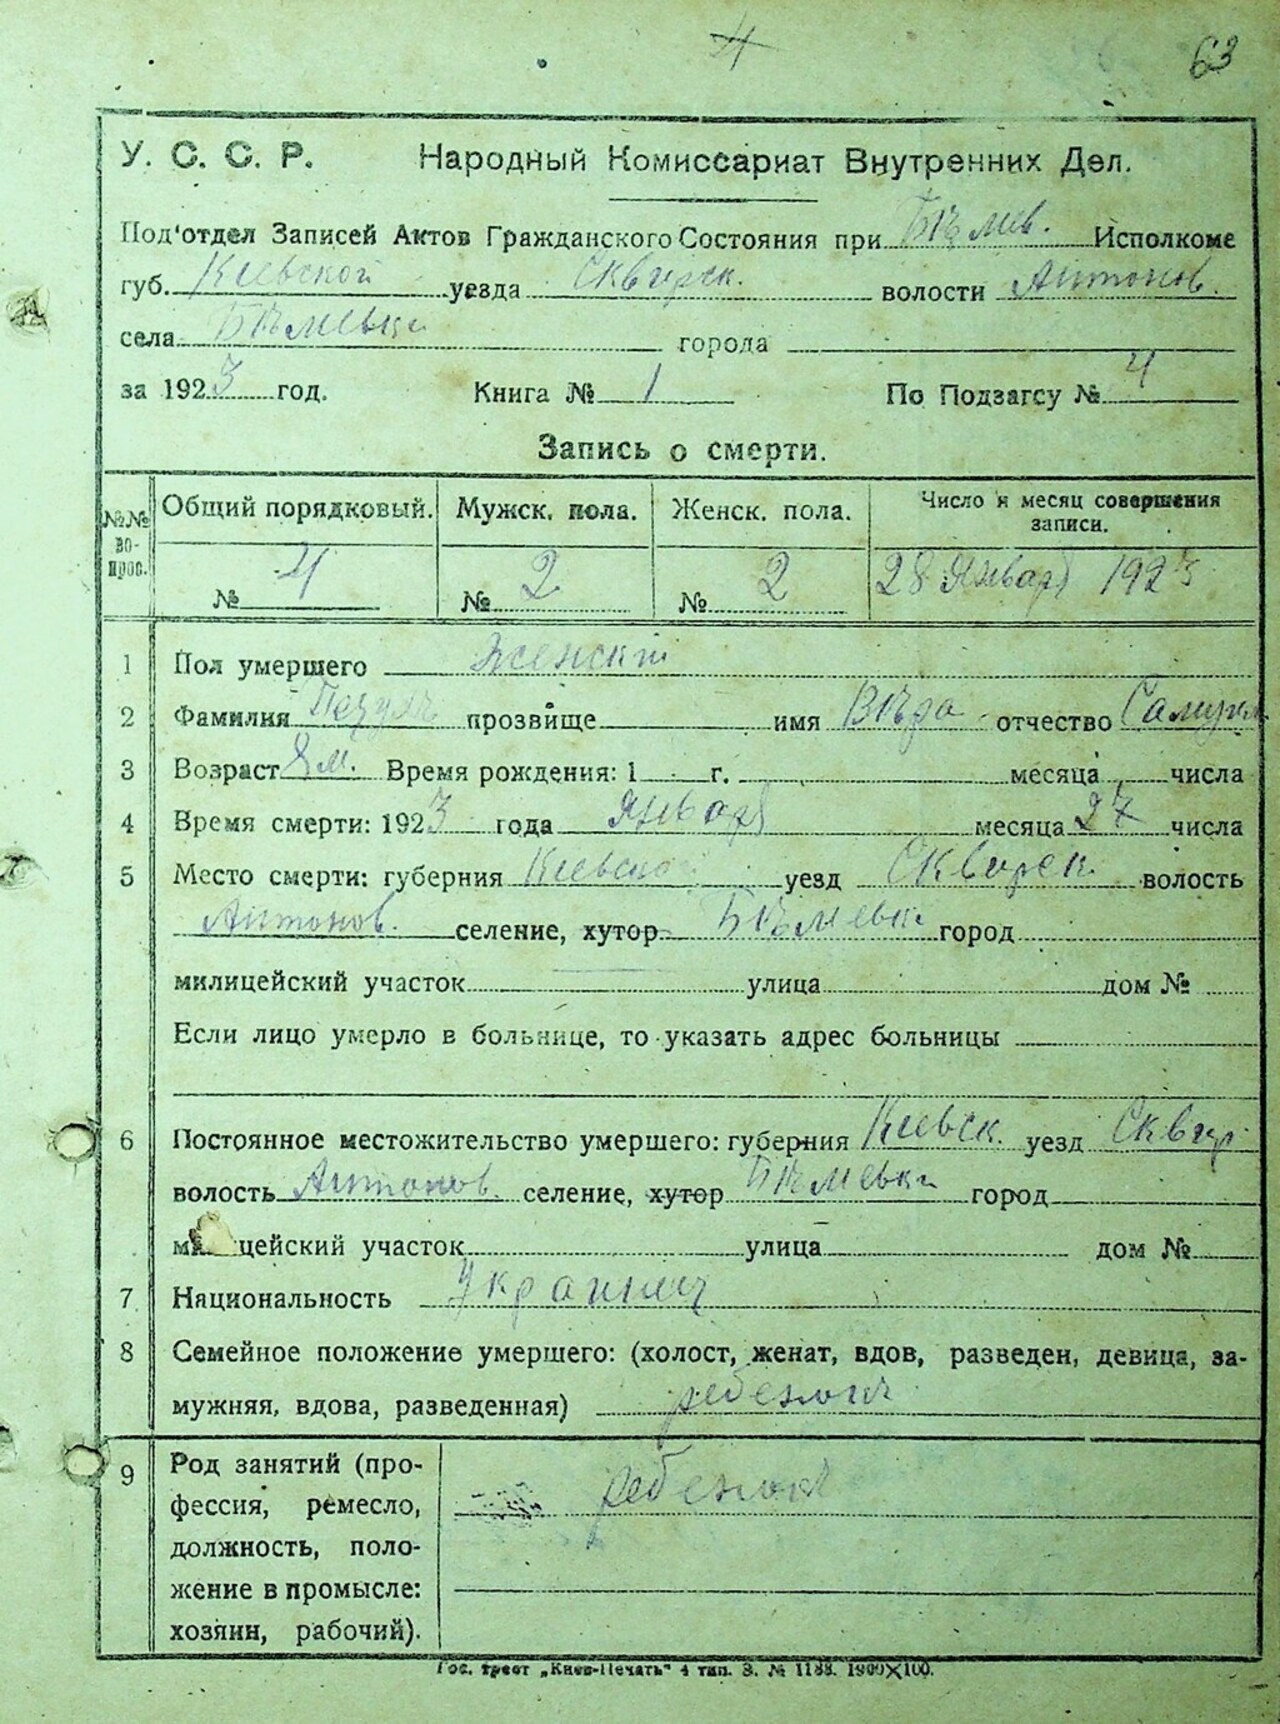 4 63
У. С. С. Р. Народный Комиссариат Внутренних Дел.
Под'отдел Записей Актов Гражданского Состояния при Бѣлiев. Исполкоме
губ. Киевской уезда Сквирск. волости Антонов.
села Бѣлiевки города
за 1923 год. Книга № 1 По Подзагсу № 4
Запись о смерти.
№№ во-прос. Общий порядковый. Мужск. пола. Женск. пола. Число и месяц совершения записи.
№ 4 № 2 № 2 28 Января 1923
1 Пол умершего Женский
2 Фамилия прозвище имя Вѣра отчество Самуил.
3 Возраст 8 м. Время рождения: 1 г. месяца числа
4 Время смерти: 1923 года Января месяца 27 числа
5 Место смерти: губерния Киевской уезд Сквирск. волость
Антонов. селение, хутор Бѣлiевки город
милицейский участок улица дом №
Если лицо умерло в больнице, то указать адрес больницы
6 Постоянное местожительство умершего: губерния Киевск. уезд Сквир.
волость Антонов. селение, хутор Бѣлiевки город
ми цейский участок улица дом №
7 Национальность Украинец
8 Семейное положение умершего: (холост, женат, вдов, разведен, девица, за-
мужняя, вдова, разведенная) ребенок
9 Род занятий (про-
фессия, ремесло, ребенок
должность, поло-
жение в промысле:
хозяин, рабочий).
Гос. трест „Киев-Печать" 4 тип. З. № 1188. 1900✕100.